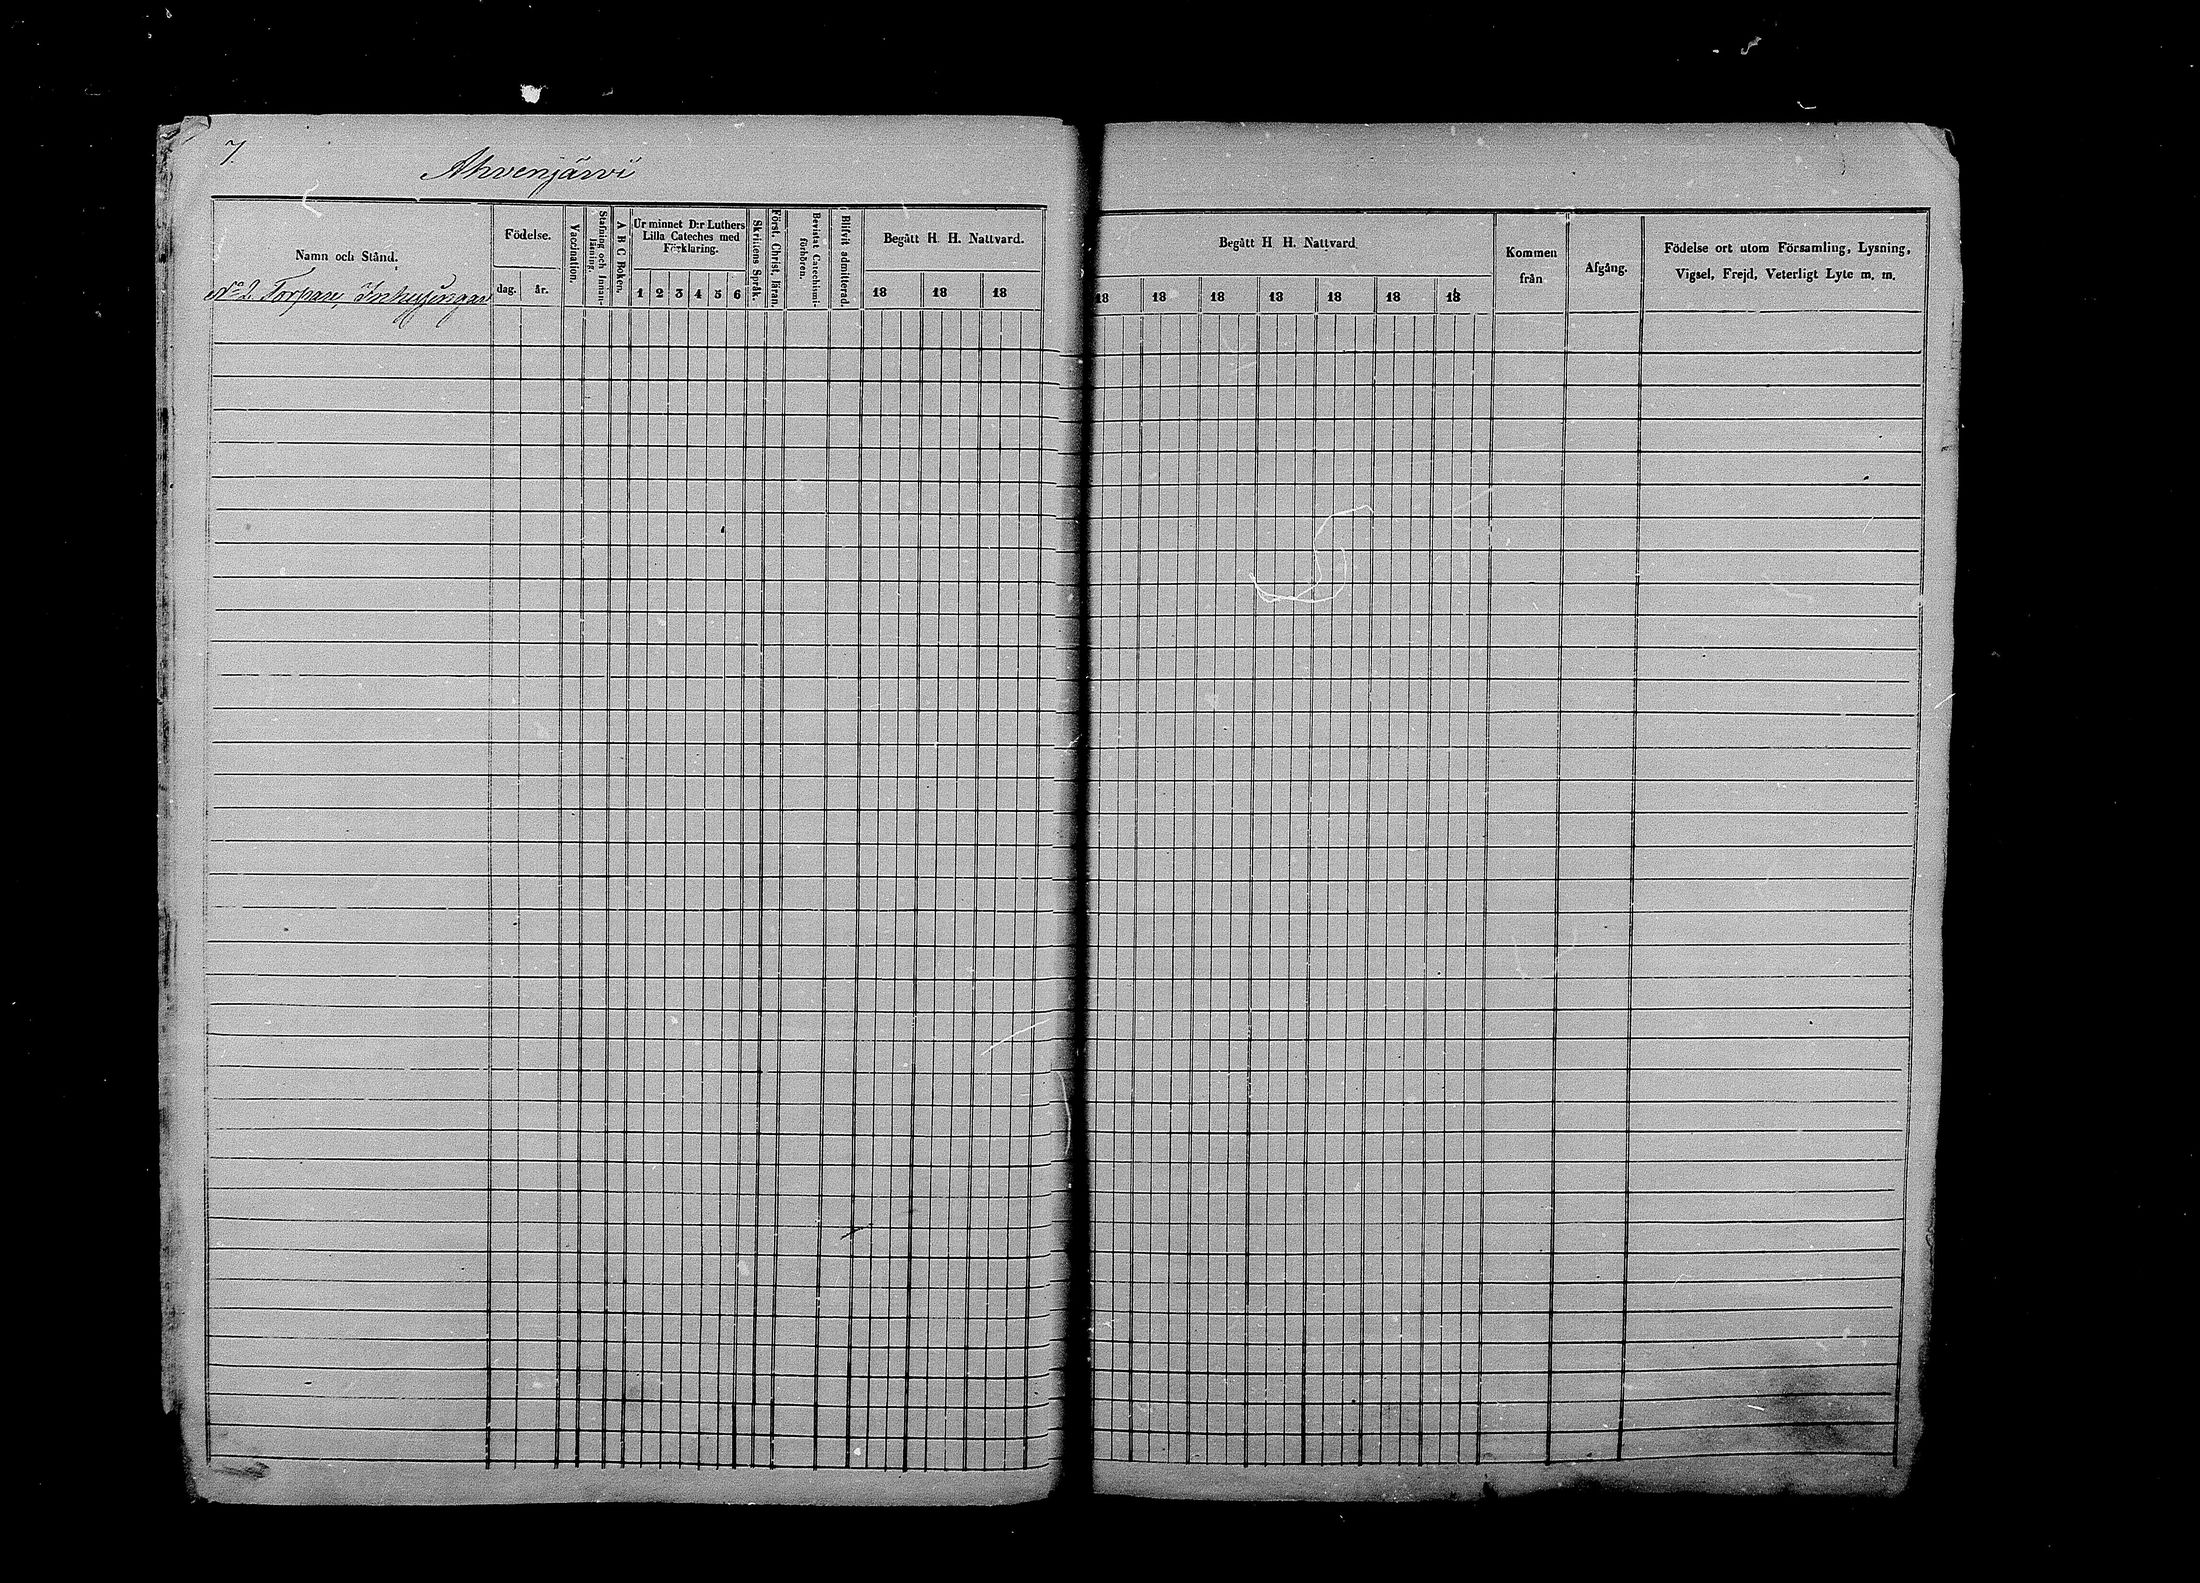 7.
Ahvenjärvi
Namn och Stånd.
No 2 Torpare, Inhysingar
Födelse.
dag. år.
Vaccination.
Stafning och Innan-
läsning.
A B C Boken.
Ur minnet D:r Luthers
Lilla Cateches med
Förklaring.
1 2 3 4 5 6
Skriftens Språk.
Först. Christ. läran.
Bevistat Catechismi-
förhören.
Blifvit admitterad.
Begått H. H. Nattvard.
18 18 18
Begått H. H. Nattvard
18 18 18 18 18 18 18
Kommen
från
Afgång.
Födelse ort utom Församling, Lysning,
Vigsel, Frejd, Veterligt Lyte m. m.